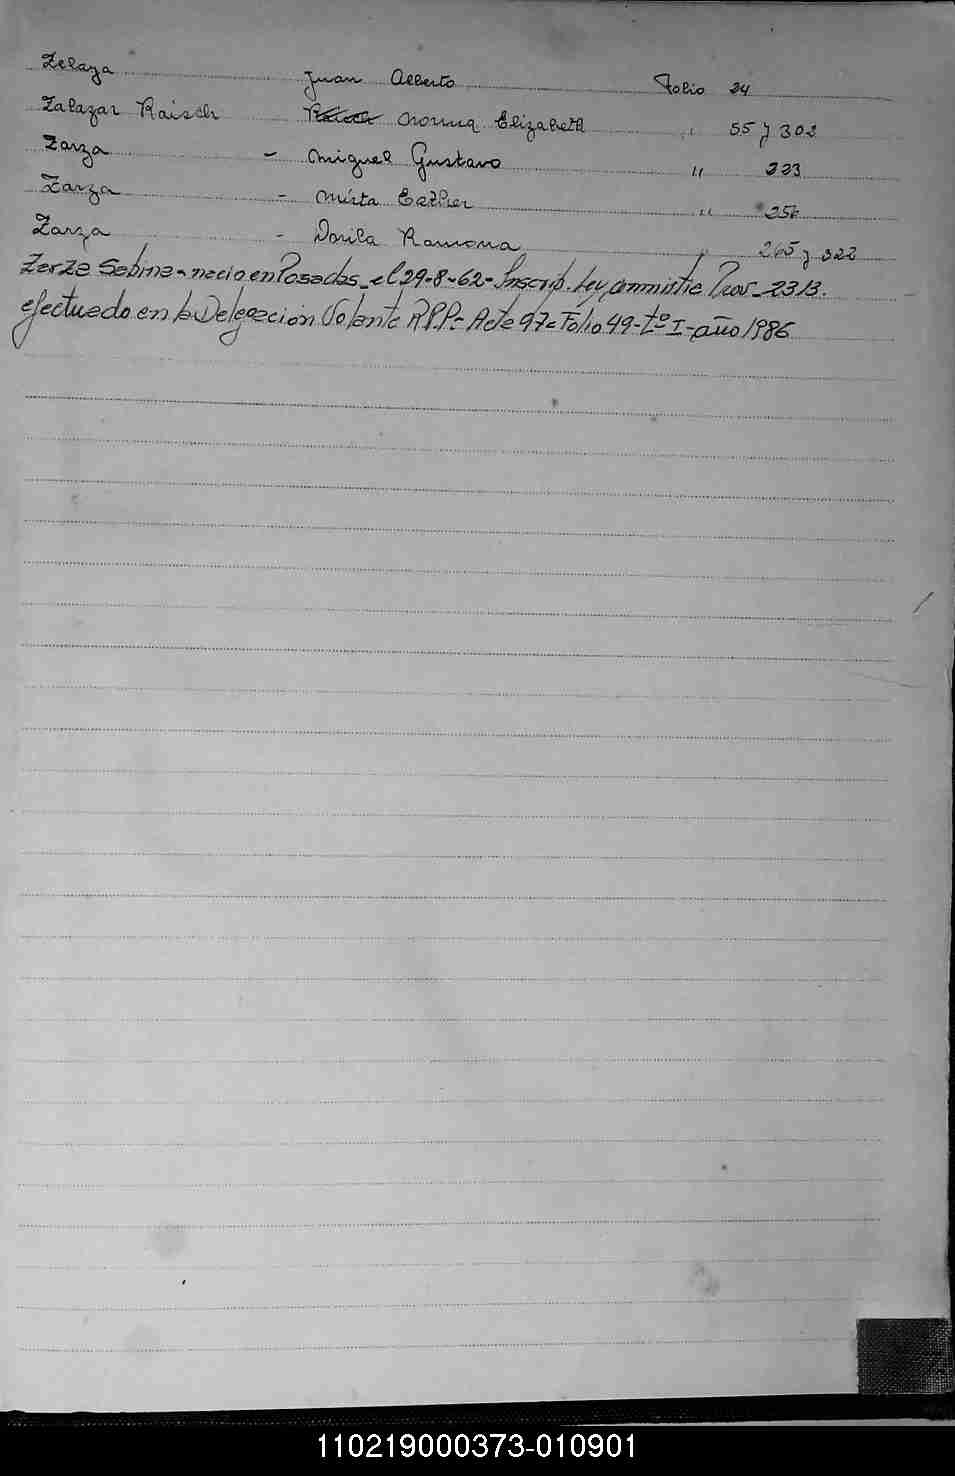 Zelaya Juan Alberto Folio 24
Zalazar Raisch Norma Elizabeth " 55 y 302
Zarza - Miguel Gustavo " 223
Zarza - Mirta Esther " 256
Zarza - Dorila Ramona " 265 y 322
Zarza Sabina - nacio en Posadas - el 29-8-62 - Inscrip. Ley Amnistia Prov - 2313.
efectuado en la Delegacion Volante R.P.P. - Acta 97 - Folio 49 - Tº I - año 1986
110219000373-010901